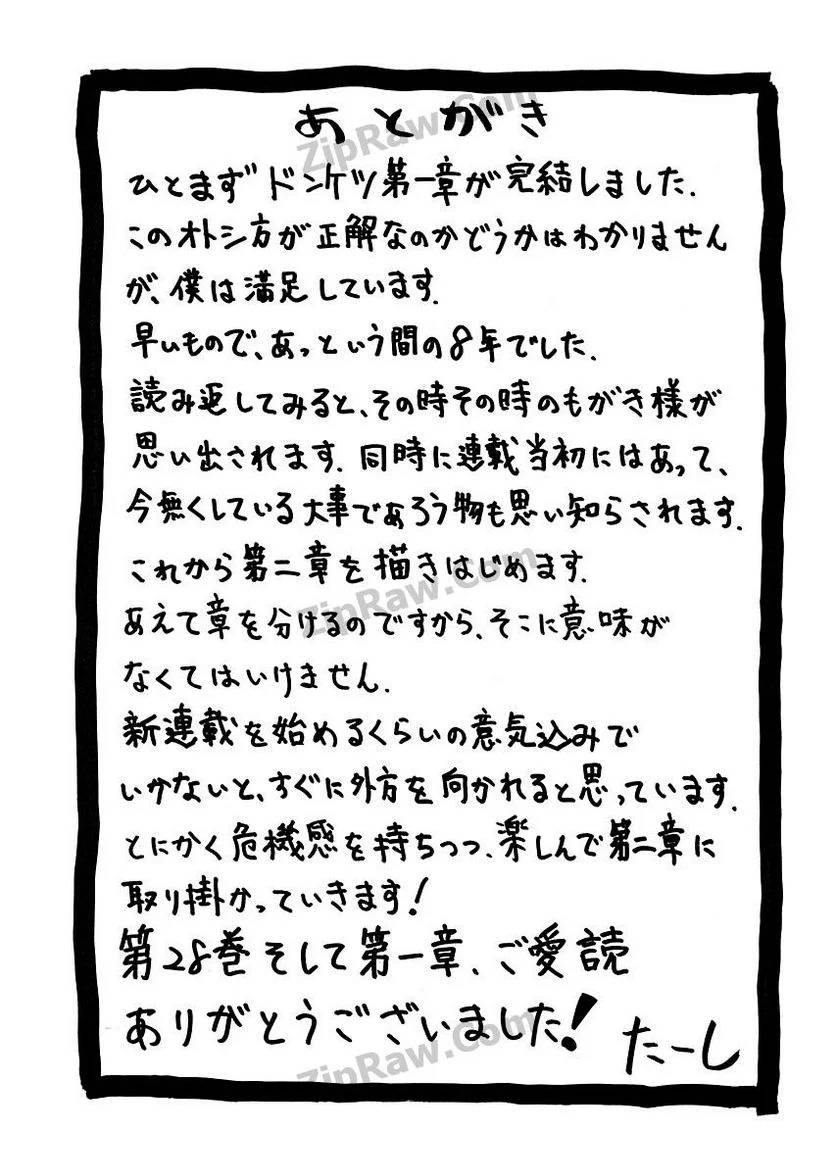 あとがき
ひとまずドンケツ第一章が完結しました.
このオトシ方が正解なのかどうかはわかりません
が、僕は満足しています.
早いもので、あっという間の8年でした.
読み返してみると、その時その時のもがき様が
思い出されます.同時に連載当初にはあって、
今無くしている大事であろう物も思い知らされます.
これから第二章を描きはじめます.
あえて章を分けるのですから、そこに意味が
なくてはいけません.
新連載を始めるくらいの意気込みで
いかないと、すぐに外方を向かれると思っています.
とにかく危機感を持ちつつ、楽しんで第二章に
取り掛かっていきます!
第28巻そして第一章、ご愛読
ありがとうございました!
たーし
ZipRaw.Com
ZipRaw.Com
ZipRaw.Com